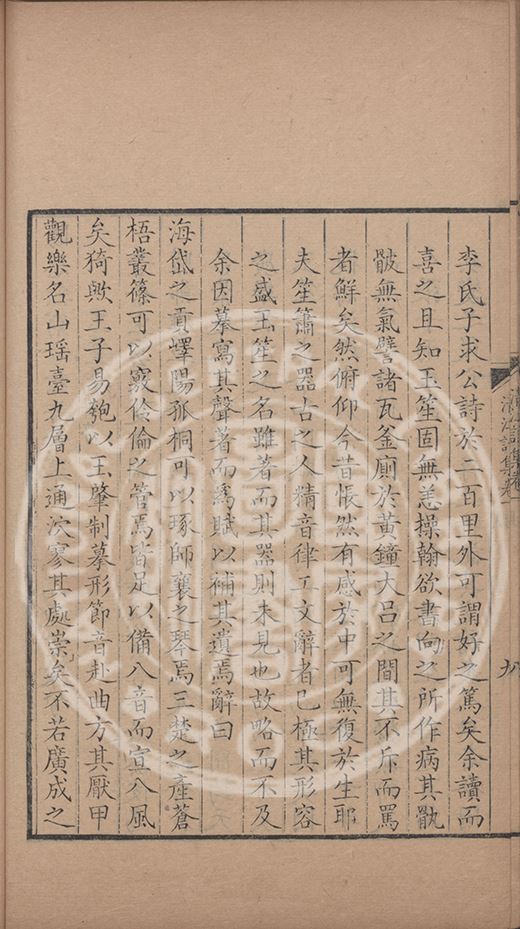 李氏子求公詩於二百里外可謂好之篤矣余讀而
喜之且知玉笙固無恙操翰欲書向之所作病其骫
骳無氣譬諸瓦釜廁於黃鐘大呂之間其不斥而罵
者鮮矣然俯仰今昔悵然有感於中可無復於生耶
夫笙簫之器古之人精音律工文辭者已極其形容
之盛玉笙之名雖著而其器則未見也故略而不及
余因摹寫其聲著而爲賦以補其遺焉辭曰
海岱之貢嶧陽孤桐可以琢師襄之琴焉三楚之產蒼
梧叢篠可以竅伶倫之管焉皆足以備八音而宣八風
矣猗歟王子易匏以玉肇制摹形節音赴曲方其厭甲
觀樂名山瑤臺九層上通泬寥其處崇矣不若廣成之